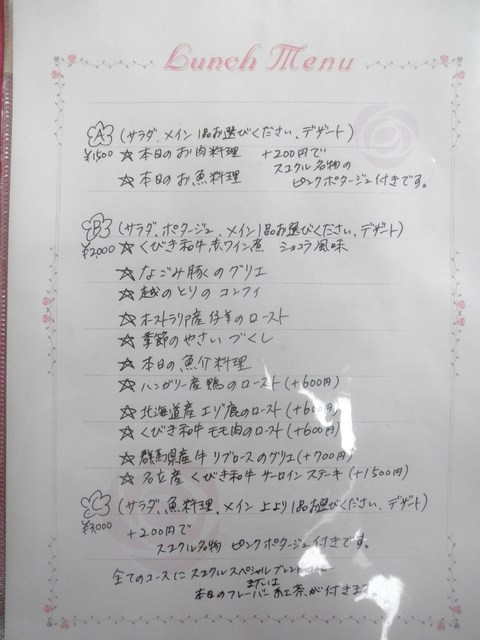 Lunch Menu
A (サラダ、メイン1品お選びください、デザート)
¥1500 ☆ 本日のお肉料理 +200円で
スエクル名物の
☆ 本日のお魚料理 ピンクポタージュ付きです。
B (サラダ、ポタージュ、メイン1品お選びください、デザート)
¥2,000 ☆ くびき和牛赤ワイン煮 ショコラ風味
☆ なごみ豚くのグリエ
☆ 越のとりのコンフィ
☆ オーストラリア産仔羊のロースト
☆ 季節のやさいづくし
☆ 本日の魚介料理
☆ ハンガリー産鴨のロースト(+600円)
☆ 北海道産エゾ鹿のロースト(+600円)
☆ くびき和牛モモ肉のロースト(+600円)
☆ 群馬県産牛リブロースのグリエ(+700円)
☆ 名立産くびき和牛サーロインステーキ(+1500円)
C (サラダ、魚料理、メイン上より1品お選びください、デザート)
¥3,000 +200円で
スエクル名物 ピンクポタージュ付きです。
全てのコースにスエクルスペシャルブレンドコーヒー
または
本日のフレーバー紅茶が付きます。